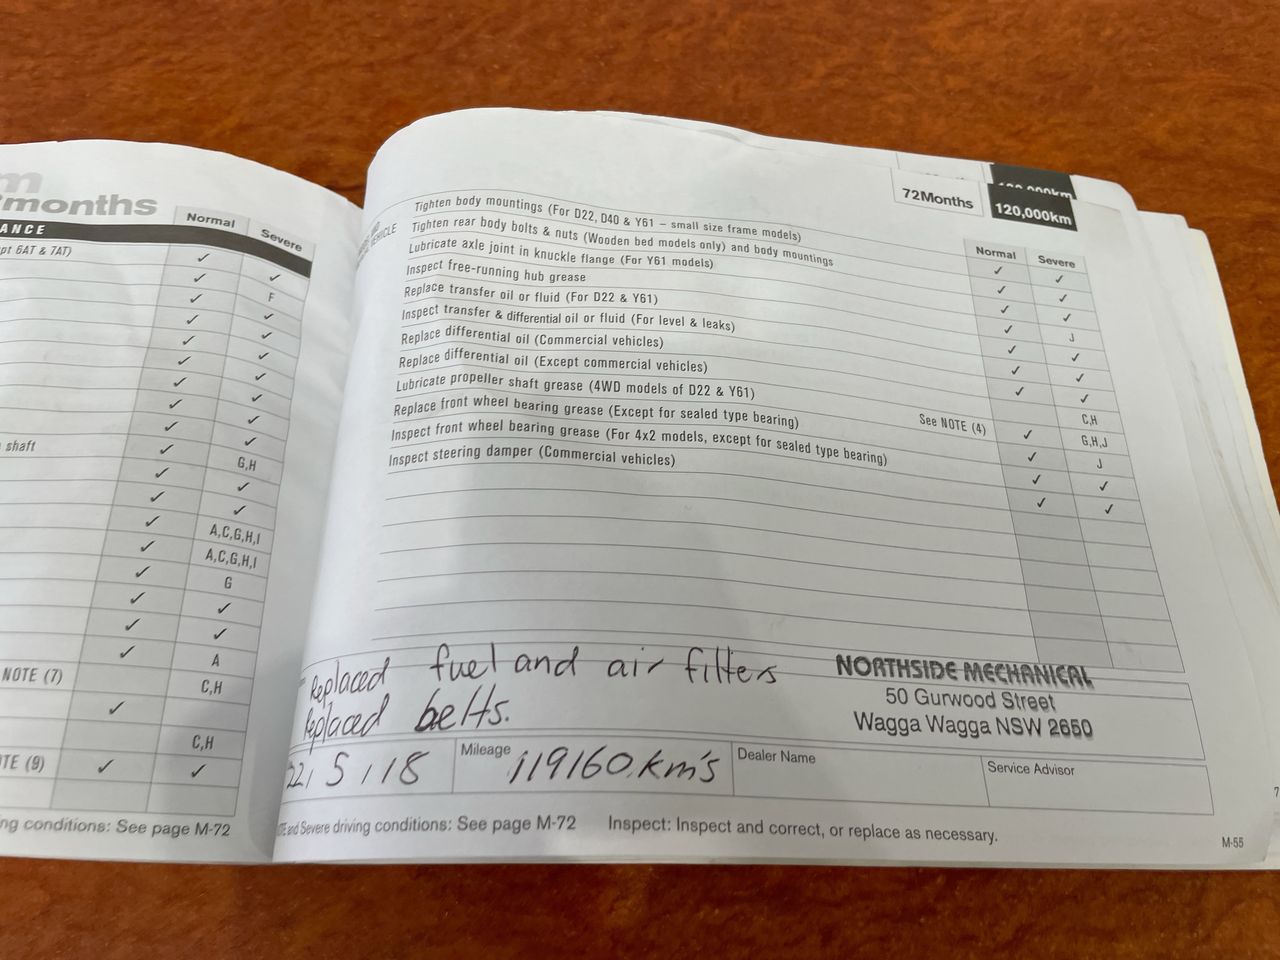 m
months
Normal
Severe
ANCE
pt 6AT & 7AT)
✓
✓ ✓
✓ F
✓ ✓
✓ ✓
✓ ✓
✓ ✓
✓ ✓
✓ ✓
shaft ✓ ✓
✓ G,H
✓ ✓
✓ ✓
✓ A,C,G,H,I
✓ A,C,G,H,I
✓ G
✓ ✓
✓ ✓
A
NOTE (7) C,H
✓
C,H
TE (9) ✓ ✓
ng conditions: See page M-72
72Months
120,000km
VEHICLE
Normal
Severe
Tighten body mountings (For D22, D40 & Y61 – small size frame models) ✓ ✓
Tighten rear body bolts & nuts (Wooden bed models only) and body mountings ✓ ✓
Lubricate axle joint in knuckle flange (For Y61 models) ✓ ✓
Inspect free-running hub grease ✓ J
Replace transfer oil or fluid (For D22 & Y61) ✓ ✓
Inspect transfer & differential oil or fluid (For level & leaks) ✓ ✓
Replace differential oil (Commercial vehicles) ✓ ✓
Replace differential oil (Except commercial vehicles) C,H
Lubricate propeller shaft grease (4WD models of D22 & Y61) See NOTE (4) ✓ G,H,J
Replace front wheel bearing grease (Except for sealed type bearing) ✓ J
Inspect front wheel bearing grease (For 4x2 models, except for sealed type bearing) ✓ ✓
Inspect steering damper (Commercial vehicles) ✓ ✓
Replaced fuel and air filters
Replaced belts.
NORTHSIDE MECHANICAL
50 Gurwood Street
Wagga Wagga NSW 2650
22/5/18
Mileage 119160 km's
Dealer Name
Service Advisor
and Severe driving conditions: See page M-72 Inspect: Inspect and correct, or replace as necessary.
M-55
7